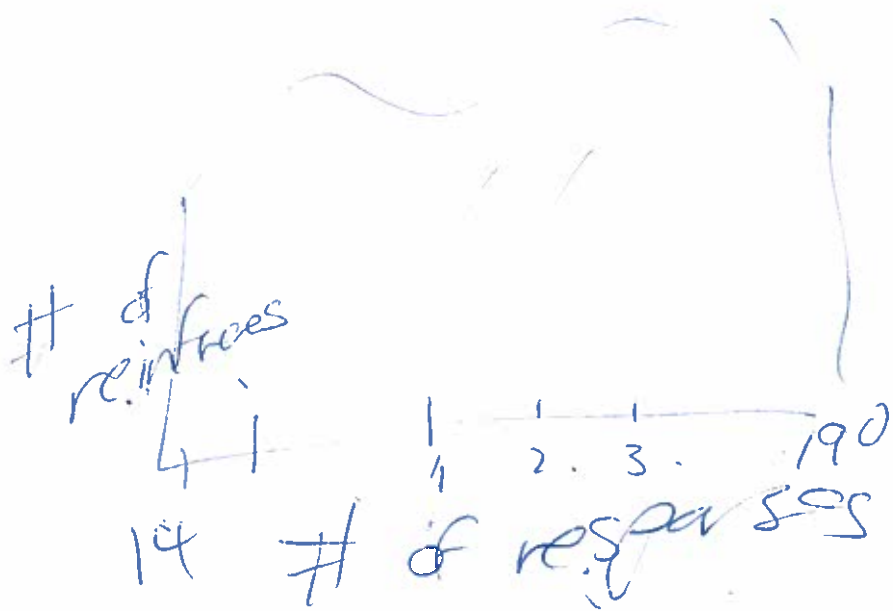 # of
reinfrces
1 2. 3. 190
14 # of responses